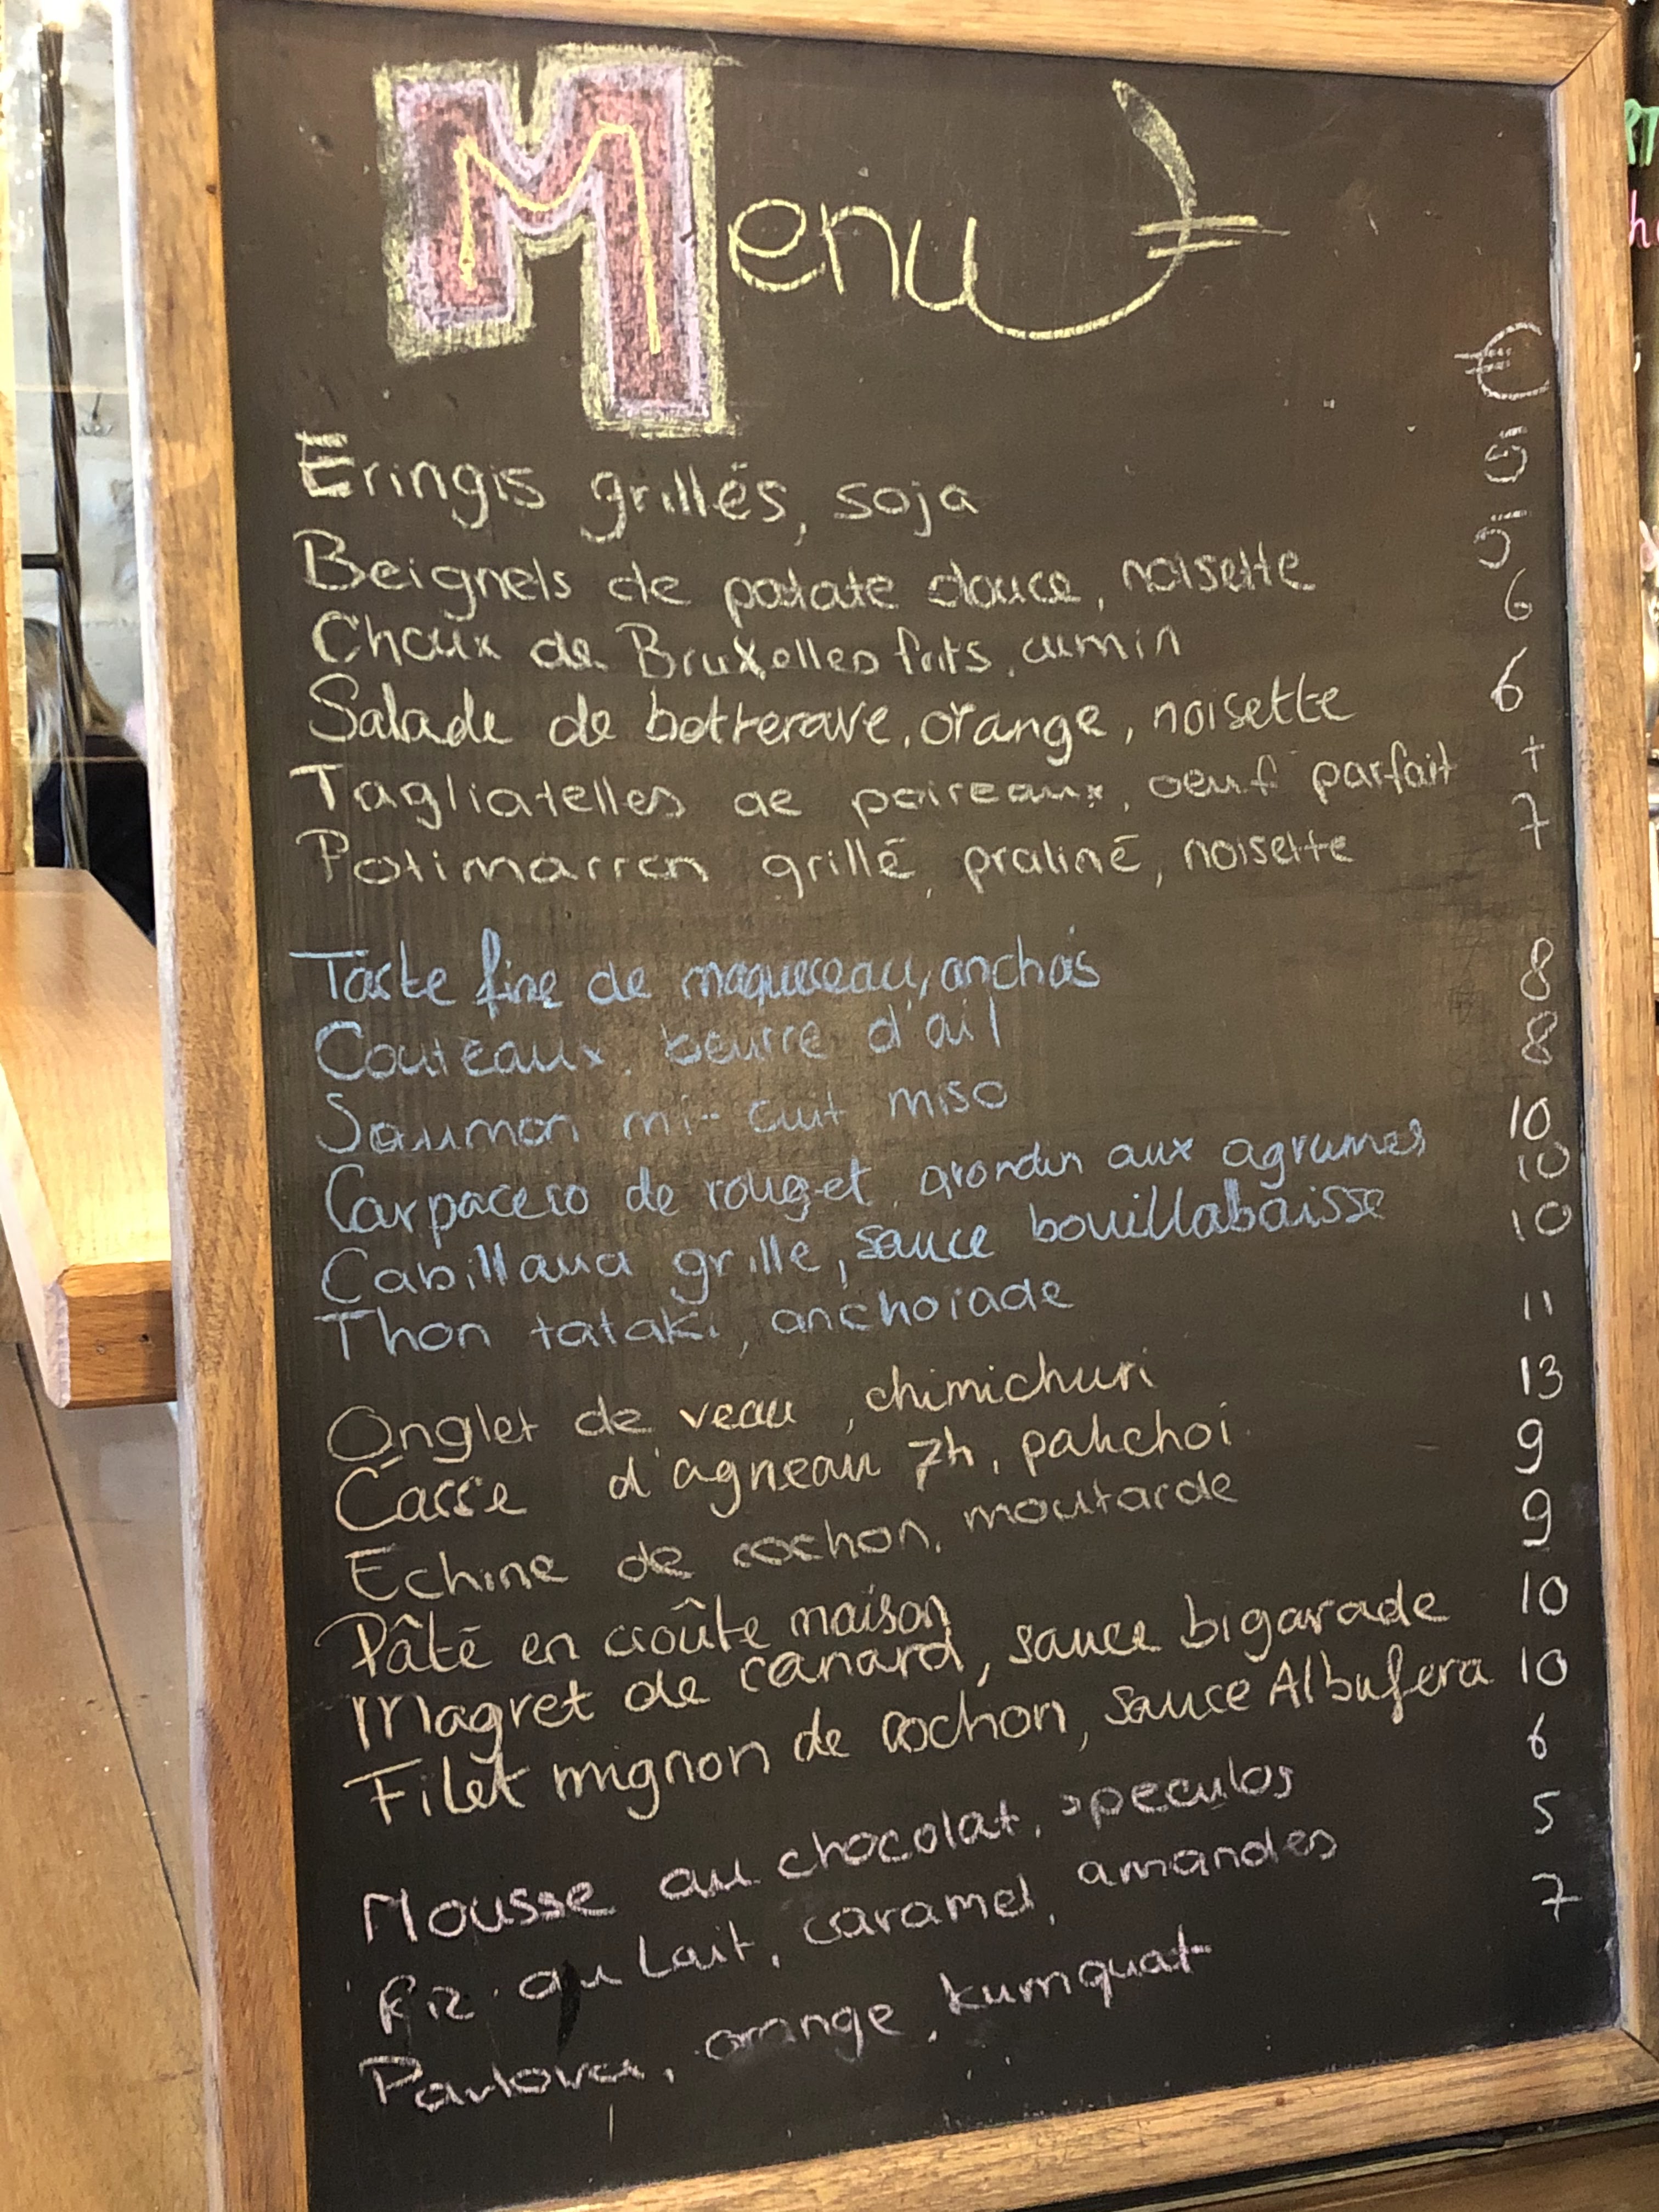 Menu
€
Eringis grillés, soja 5
Beignets de patate douce, noisette 5
Choux de Bruxelles frits, cumin 6
Salade de betterave, orange, noisette 6
Tagliatelles de poireaux, oeuf parfait 7
Potimarron grillé, praliné, noisette 7
Tarte fine de maquereau, anchois 8
Couteaux, beurre d'ail 8
Saumon mi-cuit miso 10
Carpaccio de rouget grondin aux agrumes 10
Cabillaud grille, sauce bouillabaisse 10
Thon tataki, anchoiade 11
Onglet de veau, chimichuri 13
Carré d'agneau 7h, pakchoi 9
Echine de cochon, moutarde 9
Pâté en croûte maison 10
Magret de canard, sauce bigarade 10
Filet mignon de cochon, sauce Albufera 6
Mousse au chocolat, speculos 5
Riz au lait, caramel, amandes 7
Pavlova, orange, kumquat